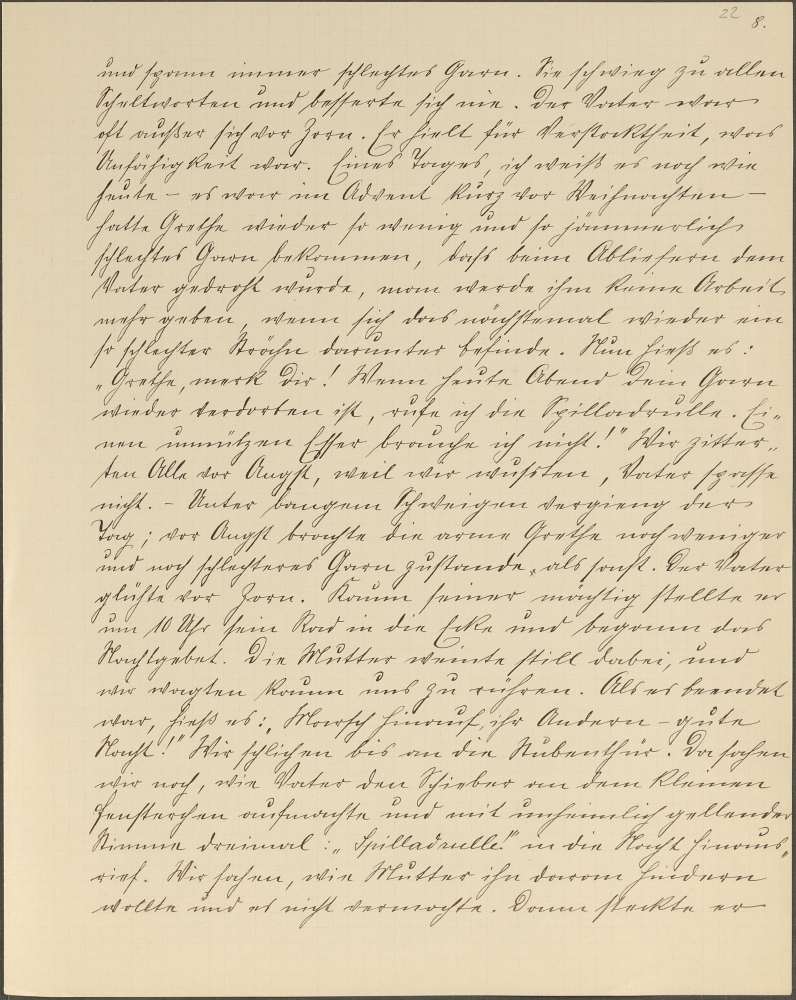 22 8.
und spann immer schlechtes Garn. Sie schwieg zu allen
Scheltworten und besserte sich nie. Der Vater war
oft außer sich vor Zorn. Er hielt für Verstocktheit, was
Unfähigkeit war. Eines Tages, ich weiß es noch wie
heute – es war im Advent kurz vor Weihnachten –
hatte Grethe wieder so wenig und so jämmerlich
schlechtes Garn bekommen, dass beim Abliefern dem
Vater gedroht wurde, man werde ihm keine Arbeit
mehr geben, wenn sich das nächstemal wieder ein
so schlechter Strähn darunter befinde. Nun hieß es:
„Grethe, merk Dir! Wenn heute Abend Dein Garn
wieder verdorben ist, rufe ich die Spilladrulle. Ei-
nen unnützen Esser brauche ich nicht!" Wir zitter-
ten Alle vor Angst, weil wir wussten, Vater spasse
nicht. – Unter bangem Schweigen vergieng der
Tag; vor Angst brachte die arme Grethe noch weniger
und noch schlechteres Garn zustande, als sonst. Der Vater
glühte vor Zorn. Kaum seiner mächtig stellte er
um 10 Uhr sein Rad in die Ecke und begann das
Nachtgebet. Die Mutter weinte still dabei, und
wir wagten kaum uns zu rühren. Als es beendet
war, hieß es: „Marsch hinauf, ihr Andern – gute
Nacht!" Wir schlichen bis an die Stubenthür. Da sahen
wir noch, wie Vater den Schieber an dem kleinen
Fensterchen aufmachte und mit unheimlich gellender
Stimme dreimal: „Spilladrulle!" in die Nacht hinaus-
rief. Wir sahen, wie Mutter ihn daran hindern
wollte und es nicht vermochte. Dann steckte er